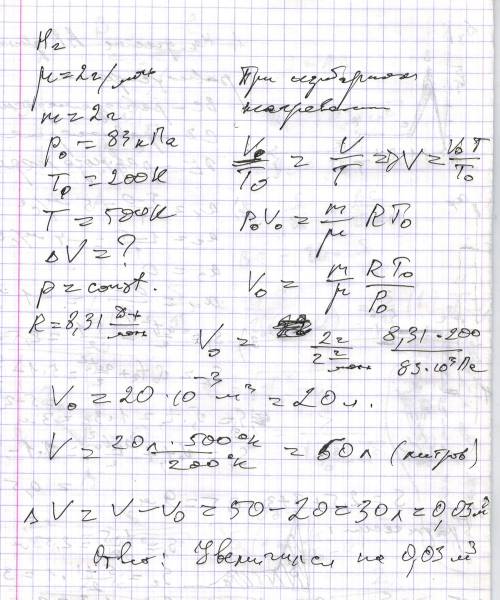 H₂
μ = 2г/моль
m = 2г
p₀ = 83 кПа
T₀ = 200К
T = 500К
ΔV = ?
p = const.
R = 8,31 Дж/моль
При изобарном
нагревании
V₀/T₀ = V/T => V = V₀T/T₀
P₀V₀ = m/μ RT₀
V₀ = m/μ RT₀/P₀
V₀ = 2г/2 г/моль 8,31·200/83·10³Па
V₀ = 20·10⁻³ м³ = 20 л.
V = 20л·500°К/200°К = 50 л (литров)
ΔV = V - V₀ = 50 - 20 = 30 л = 0,03 м³
Ответ: Увеличился на 0,03 м³